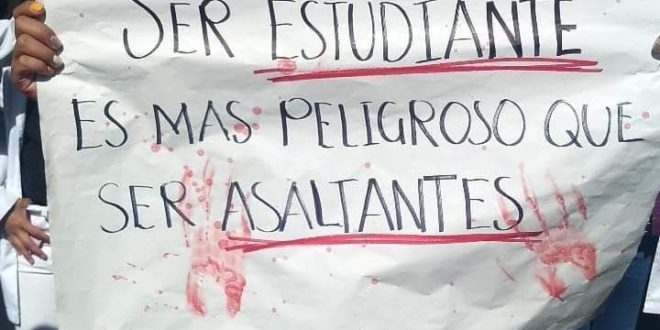 SER ESTUDIANTE
ES MAS PELIGROSO QUE
SER ASALTANTES